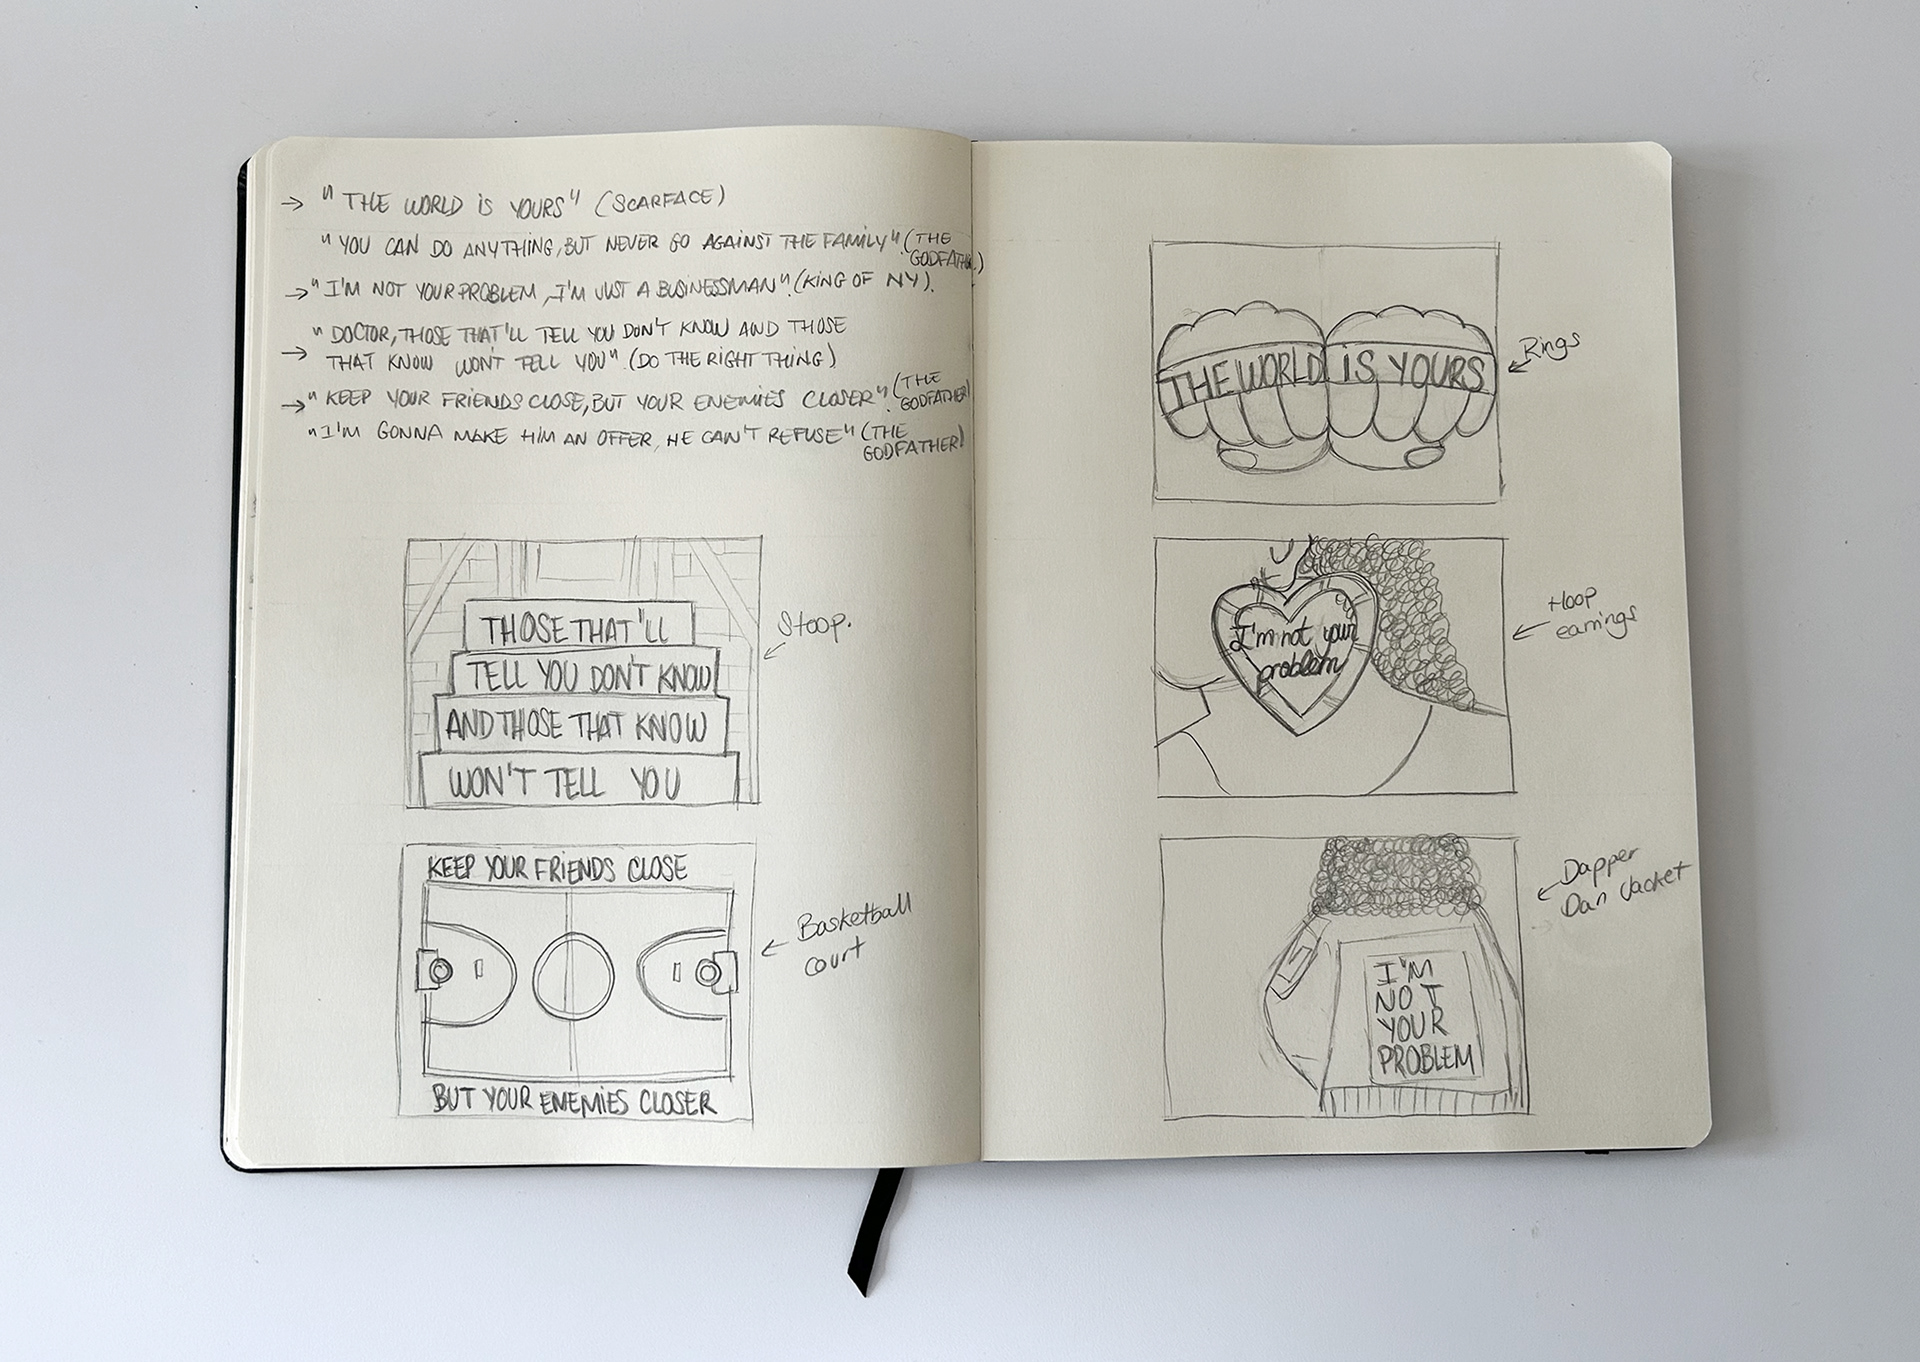 → "THE WORLD IS YOURS" (SCARFACE)
"YOU CAN DO ANYTHING, BUT NEVER GO AGAINST THE FAMILY" (THE
GODFATHER)
→ "I'M NOT YOUR PROBLEM, I'M JUST A BUSINESSMAN". (KING OF NY).
"DOCTOR, THOSE THAT'LL TELL YOU DON'T KNOW AND THOSE
→ THAT KNOW WON'T TELL YOU". (DO THE RIGHT THING)
→ "KEEP YOUR FRIENDS CLOSE, BUT YOUR ENEMIES CLOSER". (THE
GODFATHER)
"I'M GONNA MAKE HIM AN OFFER, HE CAN'T REFUSE" (THE
GODFATHER)
THOSE THAT'LL
TELL YOU DON'T KNOW
AND THOSE THAT KNOW
WON'T TELL YOU
Stoop.
KEEP YOUR FRIENDS CLOSE
BUT YOUR ENEMIES CLOSER
Basketball
court
THE WORLD IS YOURS
Rings
I'm not your
problem
Hoop
earrings
I'M
NOT
YOUR
PROBLEM
Dapper
Dan Jacket